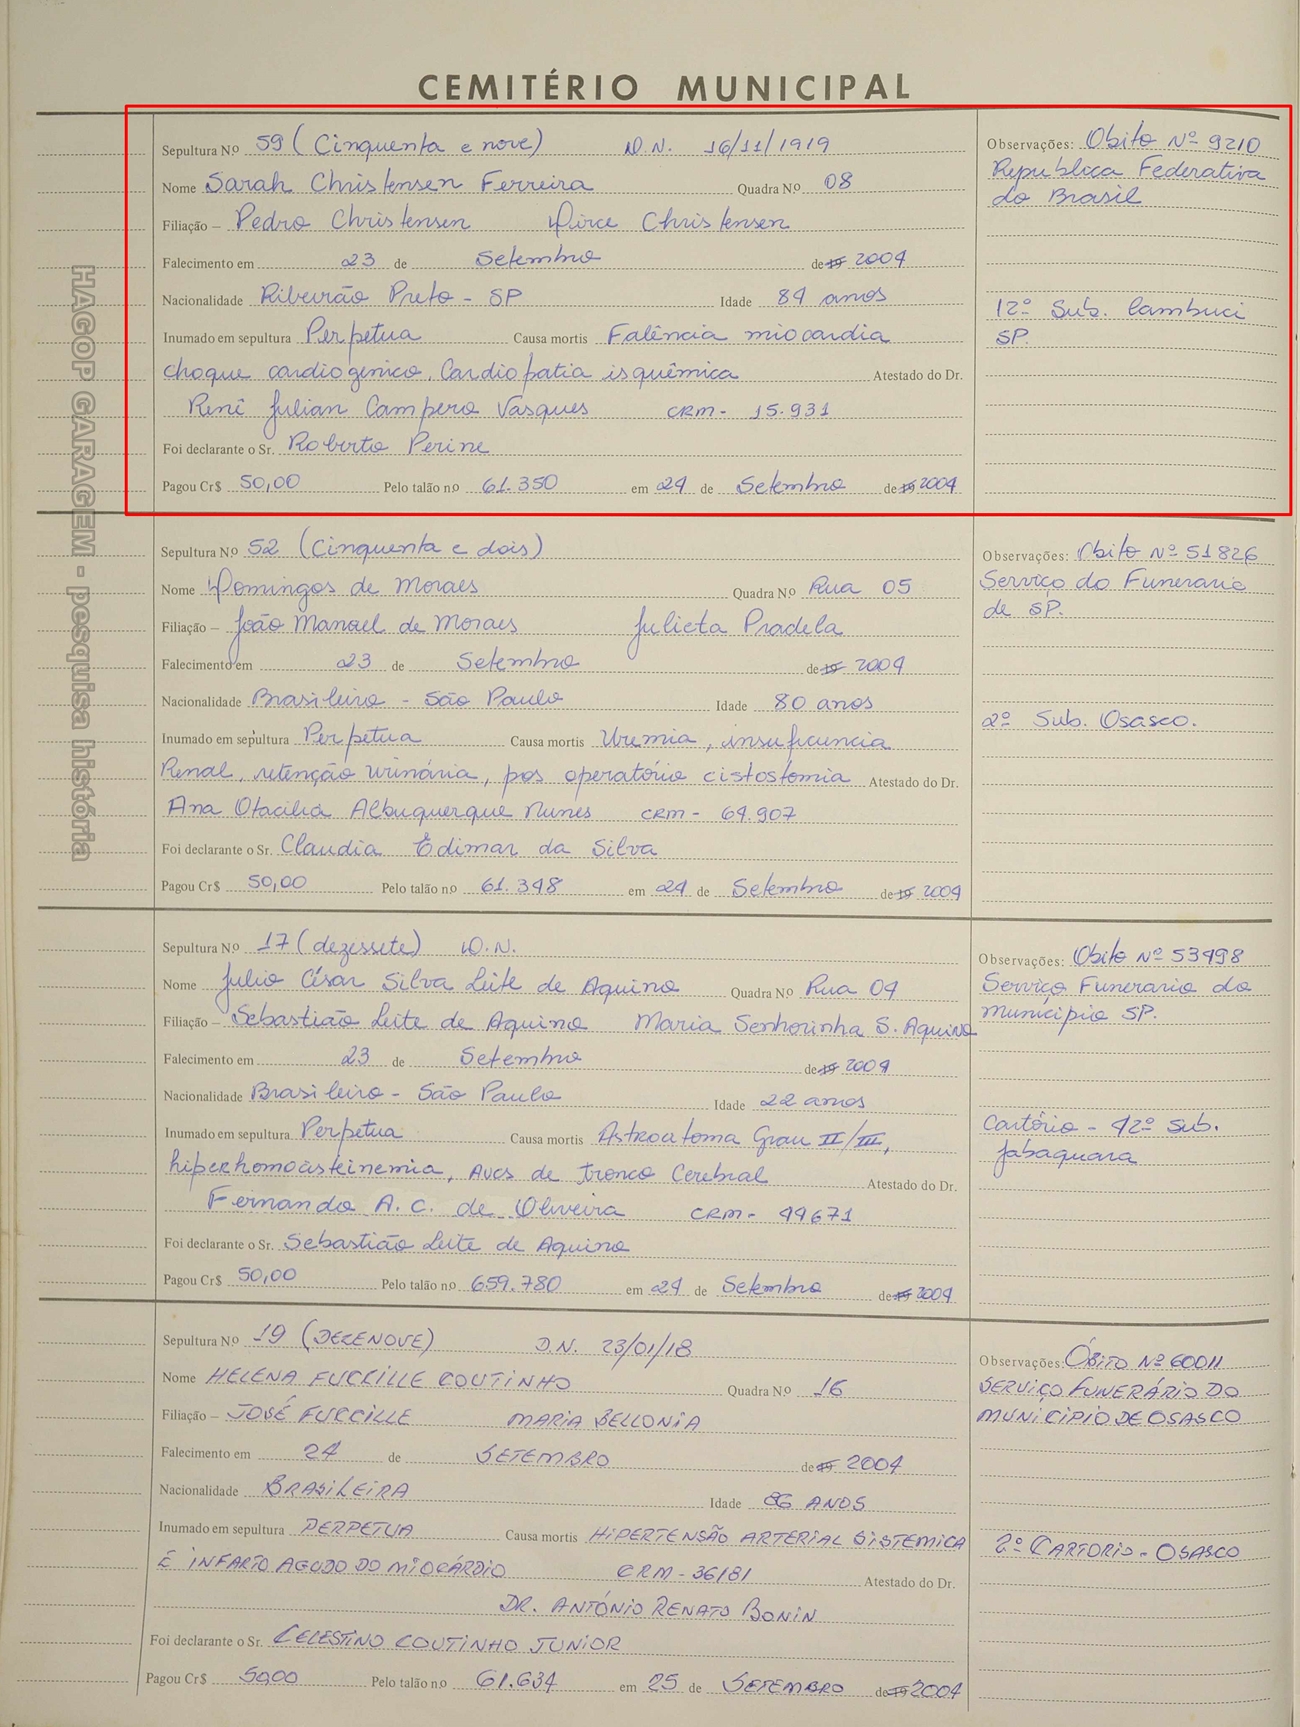 CEMITÉRIO MUNICIPAL
Sepultura Nº 59 (Cinquenta e nove) D.N. 16/11/1919
Nome Sarah Christensen Ferreira Quadra Nº 08
Filiação – Pedro Christensen Dirce Christensen
Falecimento em 23 de Setembro de 19 2004
Nacionalidade Ribeirão Preto - SP Idade 84 anos
Inumado em sepultura Perpetua Causa mortis Falência miocardia
choque cardiogenico, Cardiopatia isquêmica Atestado do Dr.
Renê Julian Campero Vasques CRM - 15.931
Foi declarante o Sr. Roberto Perine
Pagou Cr$ 50,00 Pelo talão nº 61.350 em 24 de Setembro de 19 2004
Observações: Obito Nº 9210
Republica Federativa
do Brasil
12º Sub. Cambuci
SP.
Sepultura Nº 52 (Cinquenta e dois)
Nome Domingos de Moraes Quadra Nº Rua 05
Filiação – João Manoel de Moraes Julieta Pradela
Falecimento em 23 de Setembro de 19 2004
Nacionalidade Brasileiro - São Paulo Idade 80 anos
Inumado em sepultura Perpetua Causa mortis Uremia, insuficiencia
Renal, retenção urinária, pos operatório cistostomia Atestado do Dr.
Ana Otacilia Albuquerque Nunes CRM - 64.907
Foi declarante o Sr. Claudia Edimar da Silva
Pagou Cr$ 50,00 Pelo talão nº 61.348 em 24 de Setembro de 19 2004
Observações: Obito Nº 51826
Serviço do Funerario
de SP.
2º Sub. Osasco.
Sepultura Nº 17 (dezessete) D.N.
Nome Julio César Silva Leite de Aquino Quadra Nº Rua 04
Filiação – Sebastião Leite de Aquino Maria Senhorinha S. Aquino
Falecimento em 23 de Setembro de 19 2004
Nacionalidade Brasileiro - São Paulo Idade 22 anos
Inumado em sepultura Perpetua Causa mortis Astroatoma Grau II/III,
hiperhomoàsteinemia, Avcs de tronco Cerebral Atestado do Dr.
Fernando A. C. de Oliveira CRM - 44671
Foi declarante o Sr. Sebastião Leite de Aquino
Pagou Cr$ 50,00 Pelo talão nº 659.780 em 24 de Setembro de 19 2004
Observações: Obito Nº 53498
Serviço Funerario do
Municipio SP.
Cartório - 42º Sub.
Jabaquara
Sepultura Nº 19 (DEZENOVE) D.N. 23/01/18
Nome HELENA FUCCILLE COUTINHO Quadra Nº 16
Filiação – JOSÉ FUCCILLE MARIA BELLONIA
Falecimento em 24 de SETEMBRO de 19 2004
Nacionalidade BRASILEIRA Idade 86 ANOS
Inumado em sepultura PERPETUA Causa mortis HIPERTENSÃO ARTERIAL SISTEMICA
E INFARTO AGUDO DO MIOCÁRDIO CRM - 36181 Atestado do Dr.
DR. ANTÓNIO RENATO BONIN
Foi declarante o Sr. CELESTINO COUTINHO JUNIOR
Pagou Cr$ 50,00 Pelo talão nº 61.634 em 25 de SETEMBRO de 19 2004
Observações: ÓBITO Nº 60011
SERVIÇO FUNERÁRIO DO
MUNICIPIO DE OSASCO
2º CARTORIO - OSASCO
HAGOP GARAGEM - pesquisa história